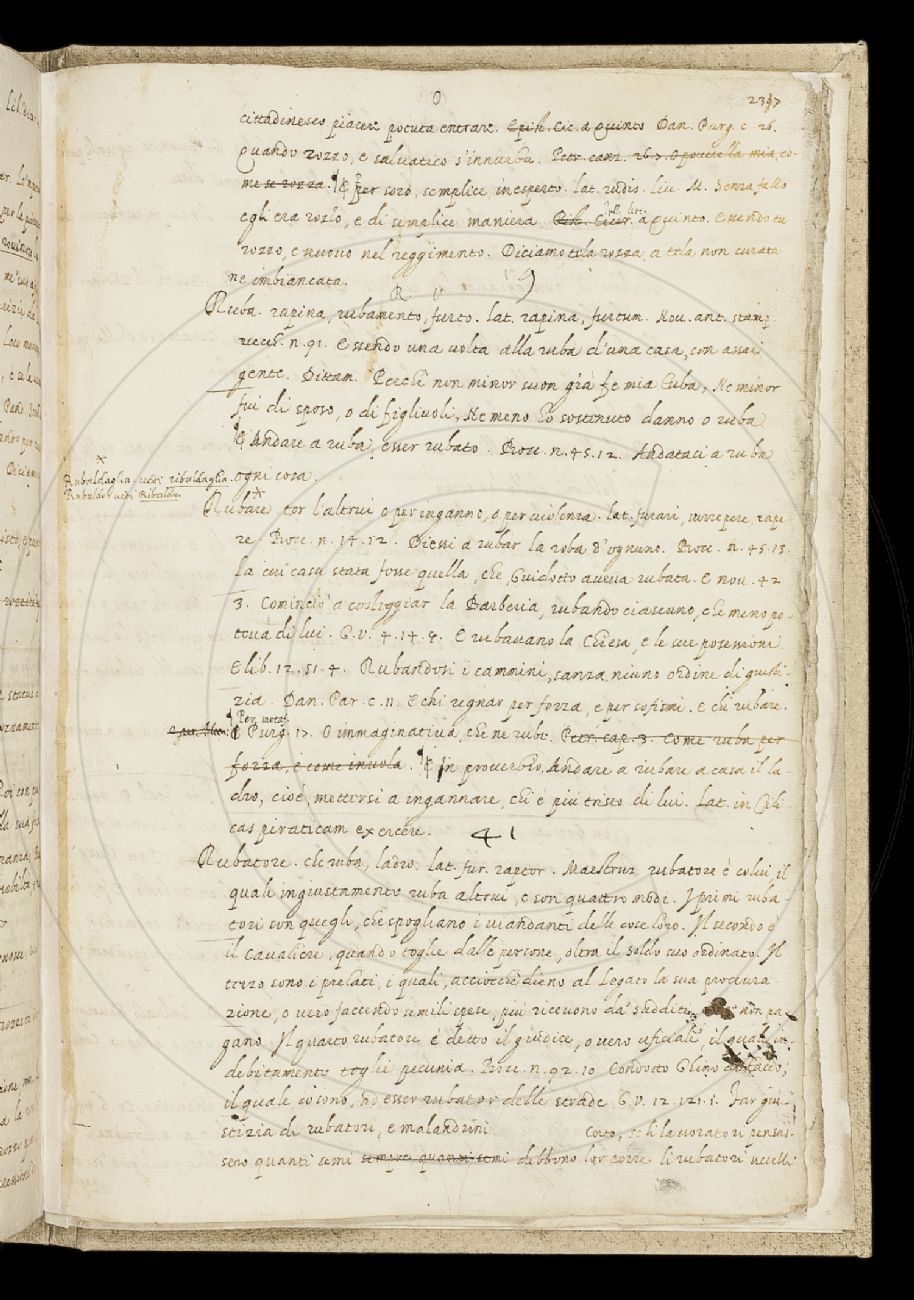 O 2397
cittadinesco piacere potuta entrare. Epist. Cic. a Quinto Dan. Purg. c. 26.
Quando rozzo, e salvatico s'innurba. Petr. canz. 26. O poverella mia co-
me se rozza. E per sozo, semplice, inesperto. lat. rudis. Liv. M. Senza fallo
egli era rozzo, e di semplice maniera. Pist. Cicer. a Quinto. Essendo tu
rozzo, e nuovo nel reggimento. Diciamo tela rozza, a tela non curata
ne imbiancata.
R U
Ruba. rapina, rubamento, furto. lat. rapina, furtum. Nov. ant. stamp.
vecch. n. 91. Essendo una volta alla ruba d'una casa, con assai
gente. Dittam. Perchè non minor suon già fe mia Cuba, Ne minor
fui di sposo, o di figlivoli, Ne meno ho sostenuto danno o ruba
E Andare a ruba, esser rubato. Bocc. n. 45. 12. Andataci a ruba
ogni cosa.
Rubaldaglia vedi ribaldaglia.
Rubaldo vedi Ribaldo.
Rubare tor l'altrui o per inganno, o per violenza. lat. furari, surripere, rape-
re. Bocc. n. 14. 12. Diessi a rubar la roba d'ognuno. Bocc. n. 45. 13.
la cui casa stata fosse quella, che Guidotto aveva rubata. E nov. 42
3. Cominciò a costeggiar la Barberia, rubando ciascuno, che meno po-
teva di lui. G. V. 4. 14. 4. E rubavano la Chiesa, e le sue possessioni
E lib. 12. 51. 4. Rubandosi i cammini, sanza niuno ordine di giusti-
zia. Dan. Par. c. 11. E chi regnar per forza, e per sofismi. E chi rubare.
Per metaf.
E Purg. 17. O immaginativa, che ne rube. Petr. cap. 3. Come ruba per
forza, e come invola. E in proverbio, Andare a rubare a casa il la-
dro, cioè, mettersi a ingannare, chi è più tristo di lui. Lat. in Cili-
cas piraticam exercere.
41
Rubatore. che ruba, ladro. lat. fur. raptor. Maestruz. rubatore è colui, il
quale ingiustamente ruba altrui, e son quattro modi. I primi ruba-
tori son quegli, che spogliano i viandanti delle cose loro. Il secondo è
il Cavaliere, quando toglie dalle persone, oltra il soldo suo ordinato. Il
terzo sono i prelati, i quali, acciocchè dieno al Legato la sua procura-
zione, o vero faccendo simili spese, più ricevono da' sudditi non pa-
gano. Il quarto rubatore, è detto il giudice, o vero uficiale, il quale in-
debitamente toglie pecunia. Bocc. n. 92. 10 Condotto Ghino
il quale io sono, ad esser rubator delle strade G. V. 12. 121. 1. Far giu-
stizia di rubatori, e malandrini Certo, se li lavoratori pensas-
sero quanti semi sempre quanti semi debbono lor torre li rubatori uccelli